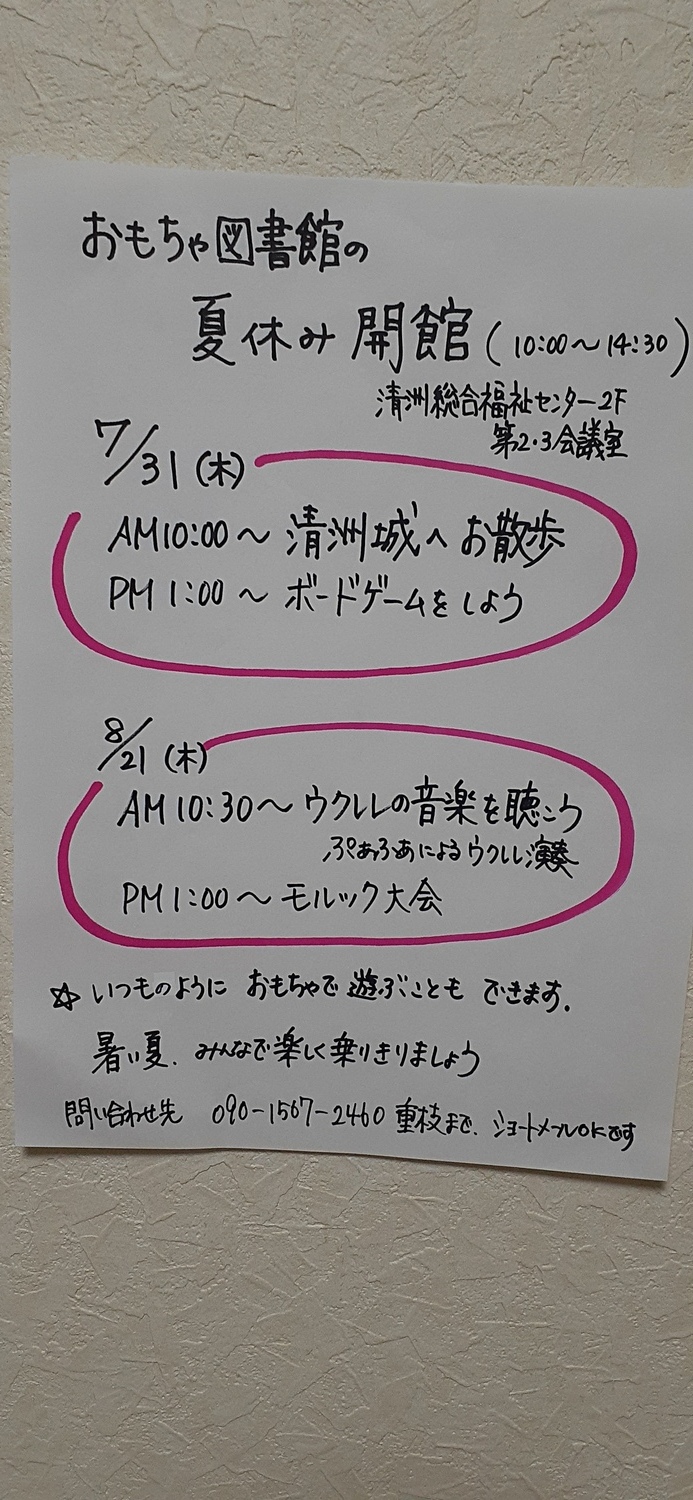 おもちゃ図書館の
夏休み 開館 (10:00〜14:30)
清洲総合福祉センター2F
第2・3会議室
7/31 (木)
AM10:00〜 清洲城へ お散歩
PM 1:00 〜 ボードゲームを しよう
8/21 (木)
AM 10:30〜 ウクレレの音楽を聴こう
ぷぁぁふあによる ウクレレ演奏
PM 1:00 〜 モルック大会
☆ いつものように おもちゃで 遊ぶことも できます.
暑い夏. みんなで楽しく乗りきりましょう
問い合わせ先 090-1567-2460 重枝まで. ショートメールOKです